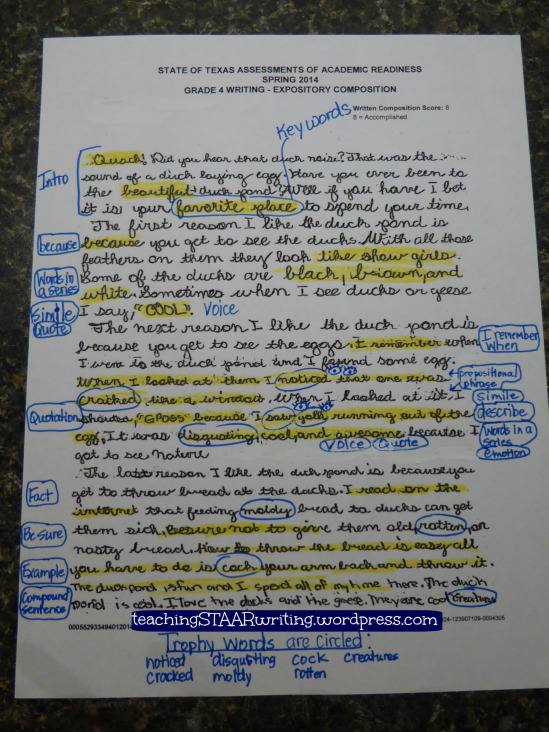 STATE OF TEXAS ASSESSMENTS OF ACADEMIC READINESS
SPRING 2014
GRADE 4 WRITING - EXPOSITORY COMPOSITION
Key words
Written Composition Score: 8
8 = Accomplished
Intro
Quack! Did you hear that duck noise? That was the
sound of a duck laying egg. Have you ever been to
the beautiful duck pond? Well if you have I bet
it is your favorite place to spend your time.
The first reason I like the duck pond is
because
because you get to see the ducks. With all those
feathers on them they look like show girls.
Words in a series
Some of the ducks are black, brown, and
white. Sometimes when I see ducks or geese
Simile
Quote
I say, "COOL". Voice
The next reason I like the duck pond is
because you get to see the eggs. I remember when
I remember when
I went to the duck pond and I found some egg.
When I looked at them I noticed that one was
prepositional phrase
cracked like a window. When I looked at it I
simile
Quotation
shouted, "GROSS" because I saw yolk running out of the
describe
egg. It was disgusting, cool, and awesome because I
Words in a series
got to see nature
Voice Quote
emotion
The last reason I like the duck pond is because you
Fact
get to throw bread at the ducks. I read on the
internet that feeding moldy bread to ducks can get
Be sure
them sick. Be sure not to give them old, rotten, or
nasty bread. How to throw the bread is easy all
Example
you have to do is cock your arm back and throw it.
Compound sentence
The duck pond is fun and I spend all of my time there. The duck
pond is cool. I love the ducks and the geese. They are cool creatures
teachingSTAARwriting.wordpress.com
Trophy Words are Circled:
noticed disgusting cock creatures
cracked moldy rotten